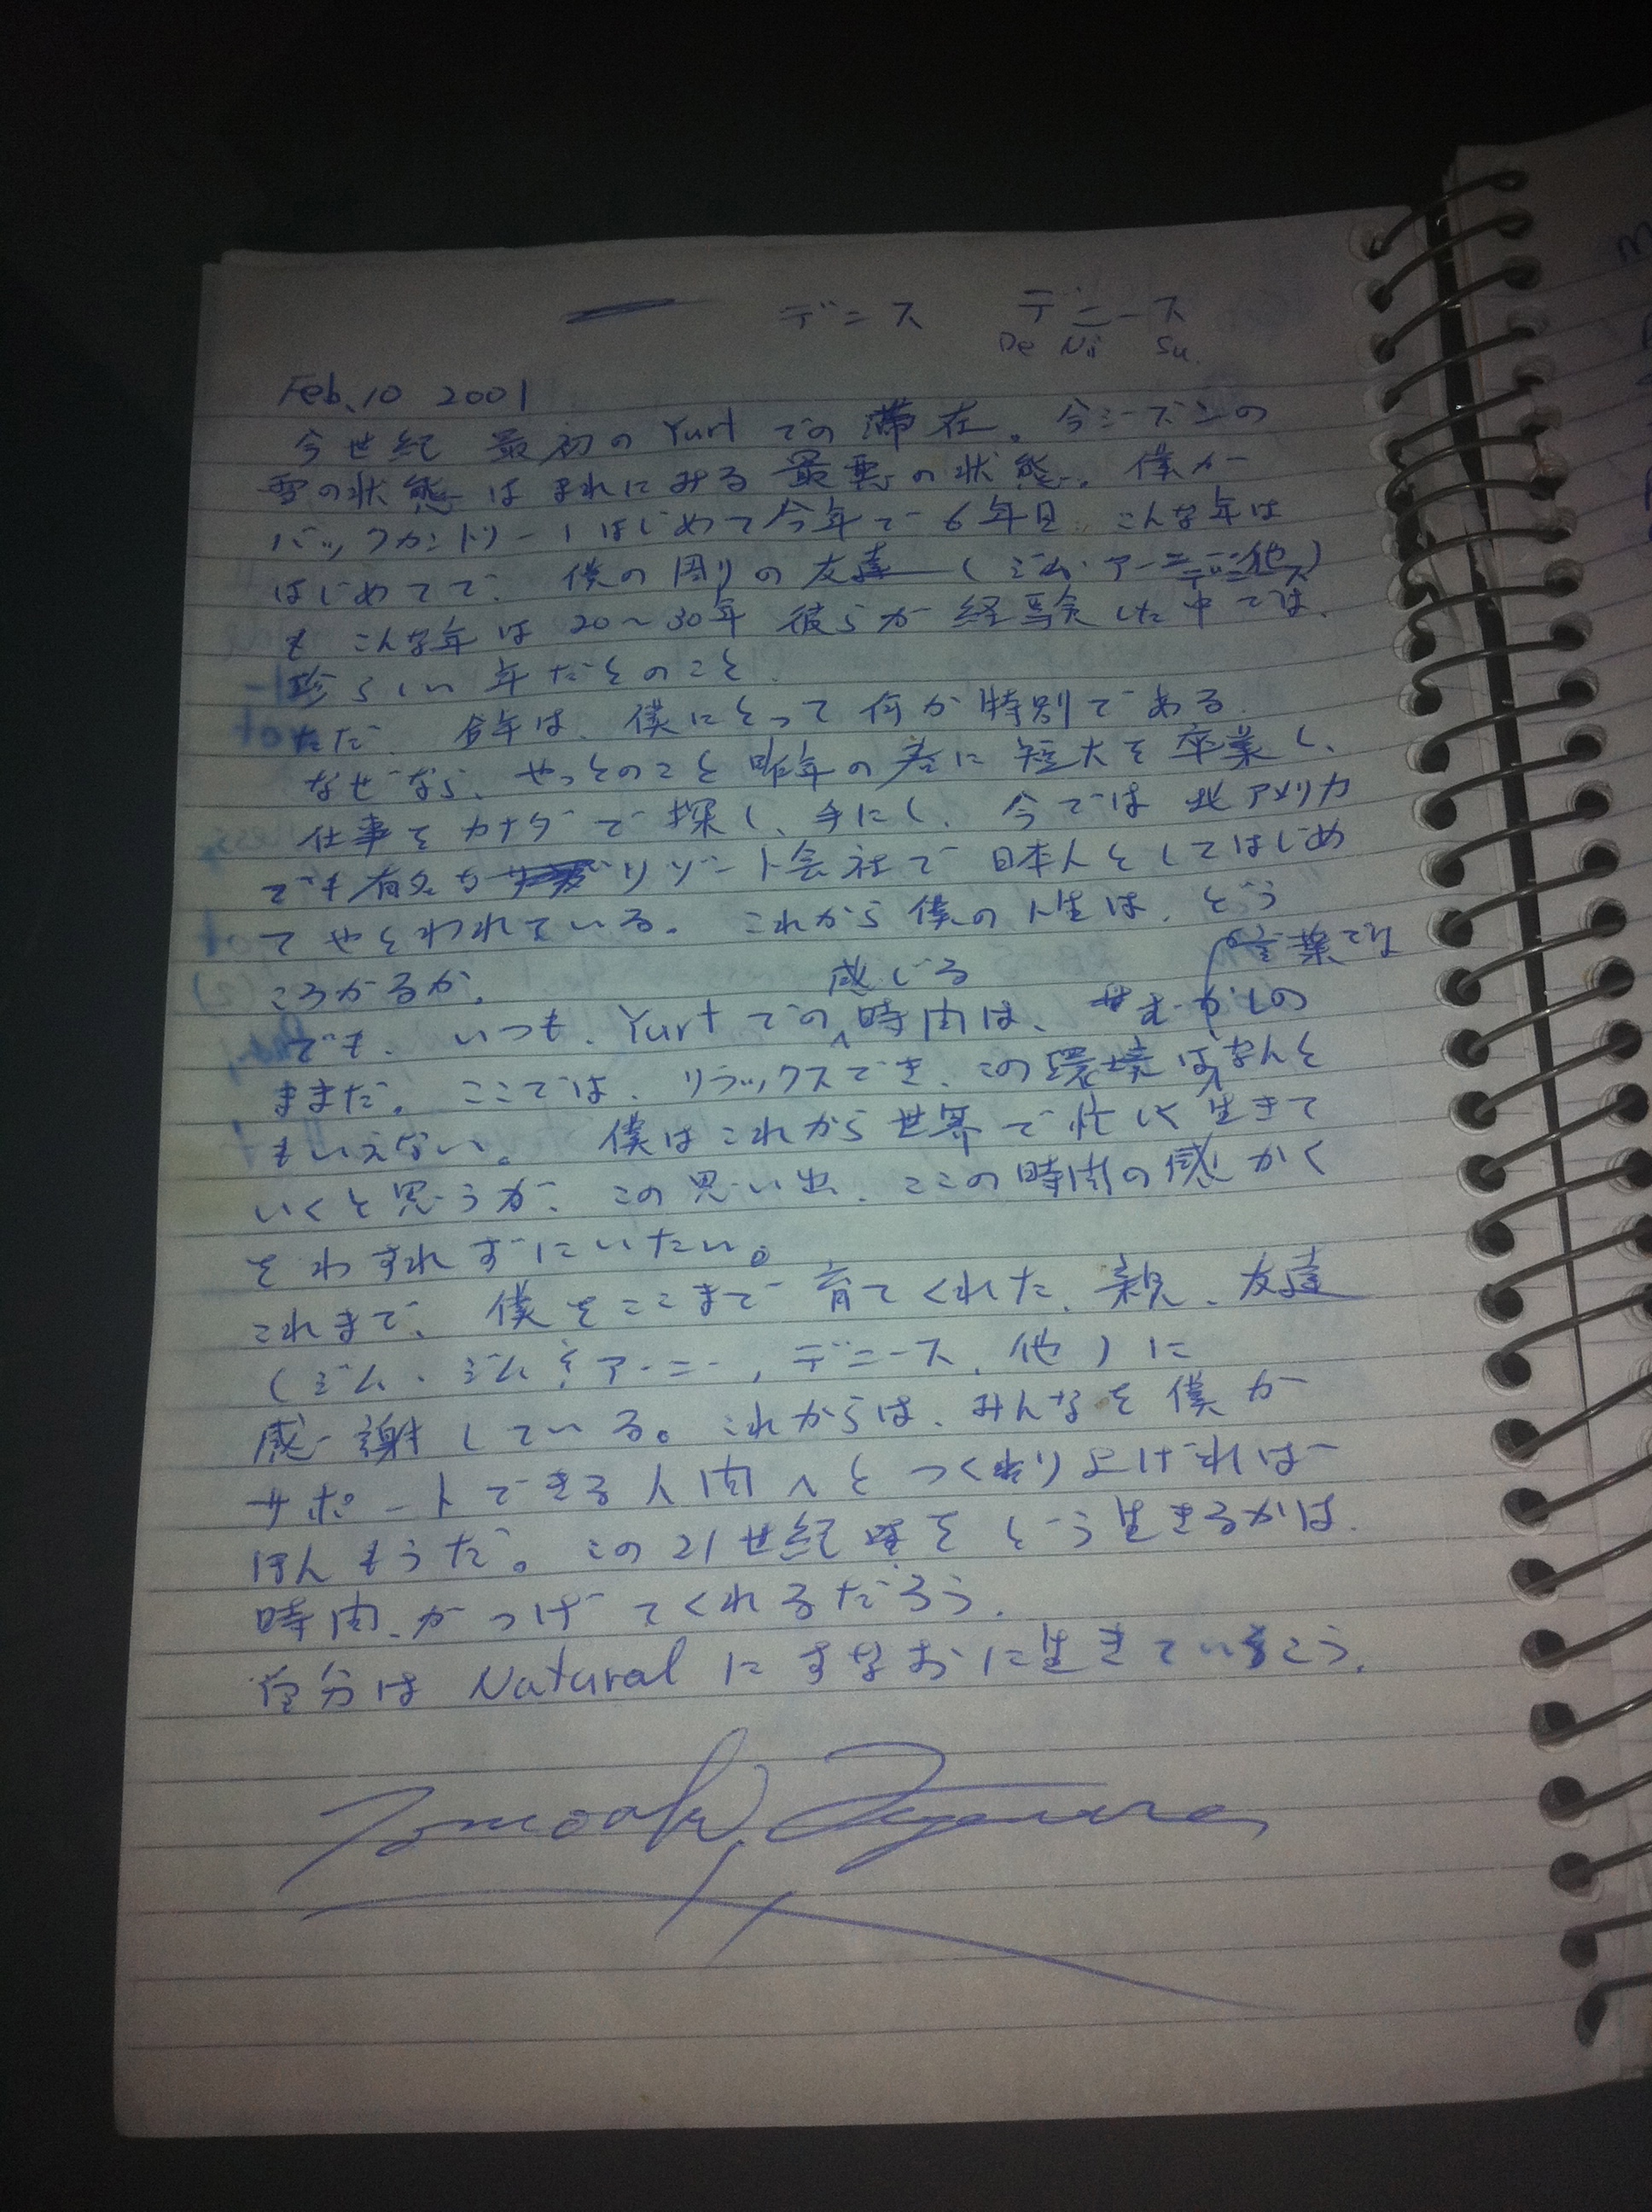 デニス デニース
De Ni Su
Feb. 10 2001
今世紀 最初の Yurt での 滞在。今シーズンの
雪の状態は まれにみる 最悪の状態。僕が
バックカントリーはじめて今年で6年目 こんな年は
はじめてで、僕の周りの友達(ジム・アーニー
も こんな年は 20〜30年 彼らが 経験した中では、
珍らしい 年だそのこと。
ただ、今年は、僕にとって 何か特別である。
なぜなら、やっとのこと 昨年の春に 短大を卒業し、
仕事を カナダで 探し、手にし、今では 北アメリカ
でも有名な リゾート会社で 日本人としてはじめ
てやとわれている。これから 僕の人生は、どう
ころがるか。
でも、いつも、Yurt での 感じる 時間は、むかしの
ままだ。ここでは、リラックスでき、この環境は 言葉では なんと
もいえない。僕はこれから 世界で 忙しく 生きて
いくと思うが、この思い出、ここの時間の感かく
をわすれずにいたい。
これまで、僕をここまで 育てくれた、親、友達
(ジム・ジム & アーニー, デニース, 他)に
感謝している。これからは、みんなを 僕が
サポートできる人間へと つくり上げれば
ほんもうだ。この21世紀 を どう生きるかは、
時間がつげてくれるだろう。
自分は Natural に すなおに生きていこう。
Tomoaki